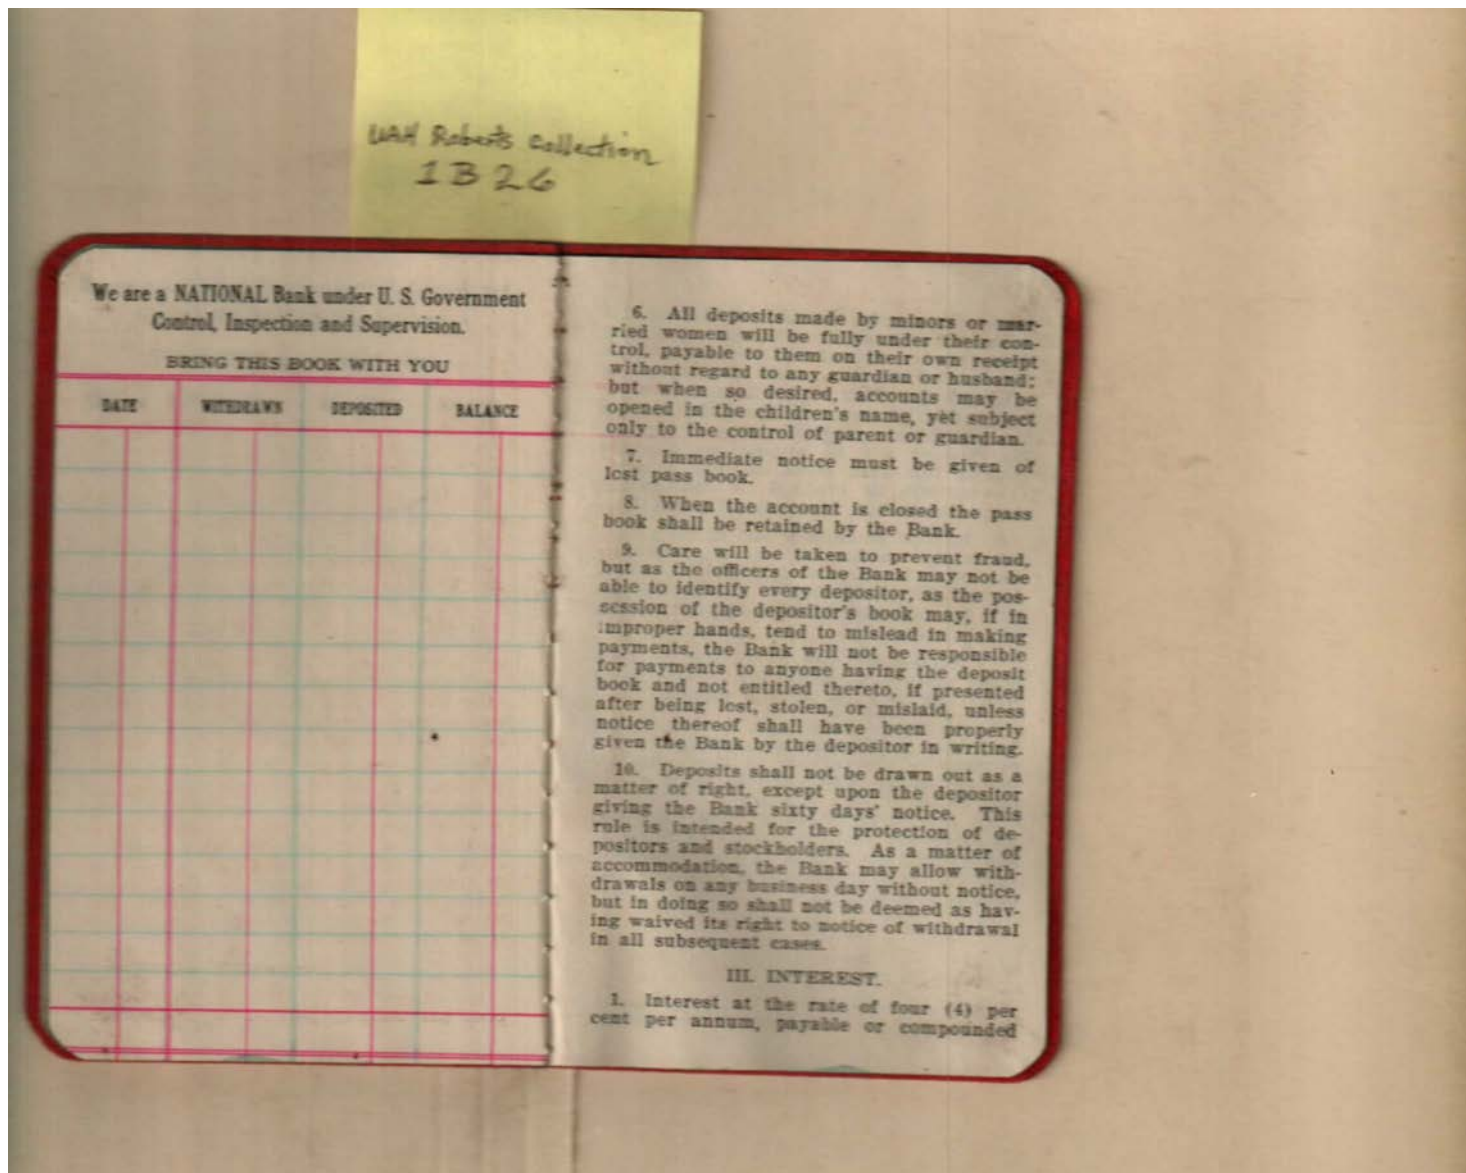 UAH Roberts Collection
1B26
We are a NATIONAL Bank under U. S. Government
Control, Inspection and Supervision.
BRING THIS BOOK WITH YOU
DATE WITHDRAWN DEPOSITED BALANCE
6. All deposits made by minors or mar-
ried women will be fully under their con-
trol, payable to them on their own receipt
without regard to any guardian or husband;
but when so desired, accounts may be
opened in the children's name, yet subject
only to the control of parent or guardian.
7. Immediate notice must be given of
lost pass book.
8. When the account is closed the pass
book shall be retained by the Bank.
9. Care will be taken to prevent fraud,
but as the officers of the Bank may not be
able to identify every depositor, as the pos-
session of the depositor's book may, if in
improper hands, tend to mislead in making
payments, the Bank will not be responsible
for payments to anyone having the deposit
book and not entitled thereto, if presented
after being lost, stolen, or mislaid, unless
notice thereof shall have been properly
given the Bank by the depositor in writing.
10. Deposits shall not be drawn out as a
matter of right, except upon the depositor
giving the Bank sixty days' notice. This
rule is intended for the protection of de-
positors and stockholders. As a matter of
accommodation, the Bank may allow with-
drawals on any business day without notice,
but in doing so shall not be deemed as hav-
ing waived its right to notice of withdrawal
in all subsequent cases.
III. INTEREST.
1. Interest at the rate of four (4) per
cent per annum, payable or compounded